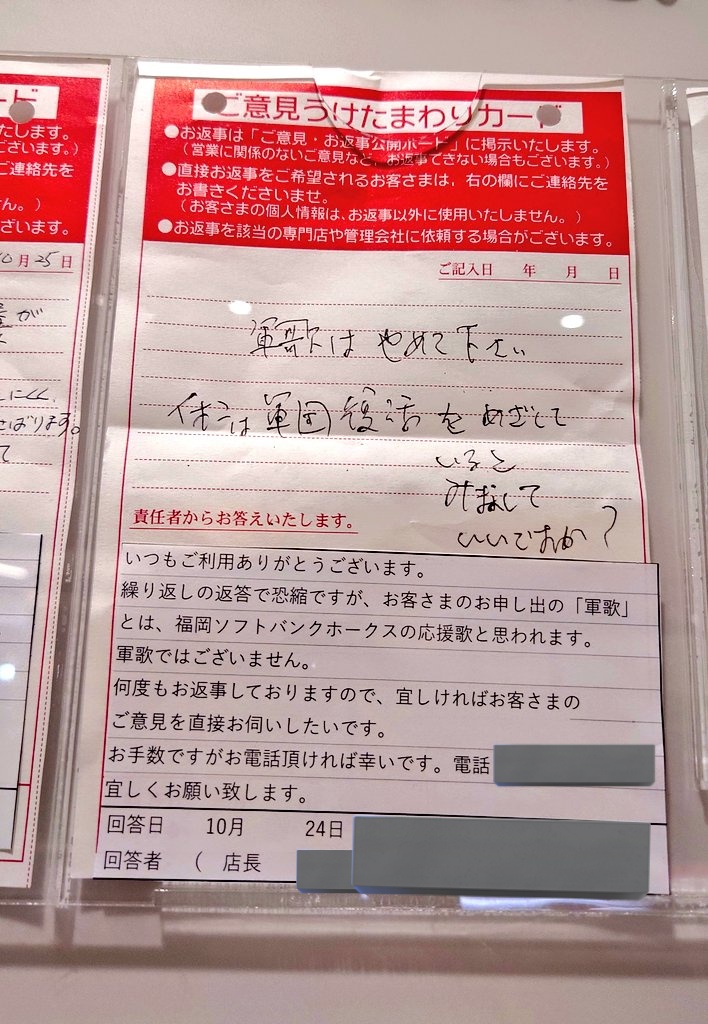 ご意見うけたまわりカード
●お返事は「ご意見・お返事公開ボード」に掲示いたします。
(営業に関係のないご意見など、お返事できない場合もございます。)
●直接お返事をご希望されるお客さまは、右の欄にご連絡先を
お書きくださいませ。
(お客さまの個人情報は、お返事以外に使用いたしません。)
●お返事を該当の専門店や管理会社に依頼する場合がございます。
ご記入日 年 月 日
軍歌はやめて下さい
は軍国復活をめざして
いると
みなして
いいですか?
責任者からお答えいたします。
いつもご利用ありがとうございます。
繰り返しの返答で恐縮ですが、お客さまのお申し出の「軍歌」
とは、福岡ソフトバンクホークスの応援歌と思われます。
軍歌ではございません。
何度もお返事しておりますので、宜しければお客さまの
ご意見を直接お伺いしたいです。
お手数ですがお電話頂ければ幸いです。電話
宜しくお願い致します。
回答日 10月 24日
回答者 ( 店長
ード
たします。
ざいます。)
ご連絡先を
ん。)
います。
10月25日
が
にくく
せばります。
て